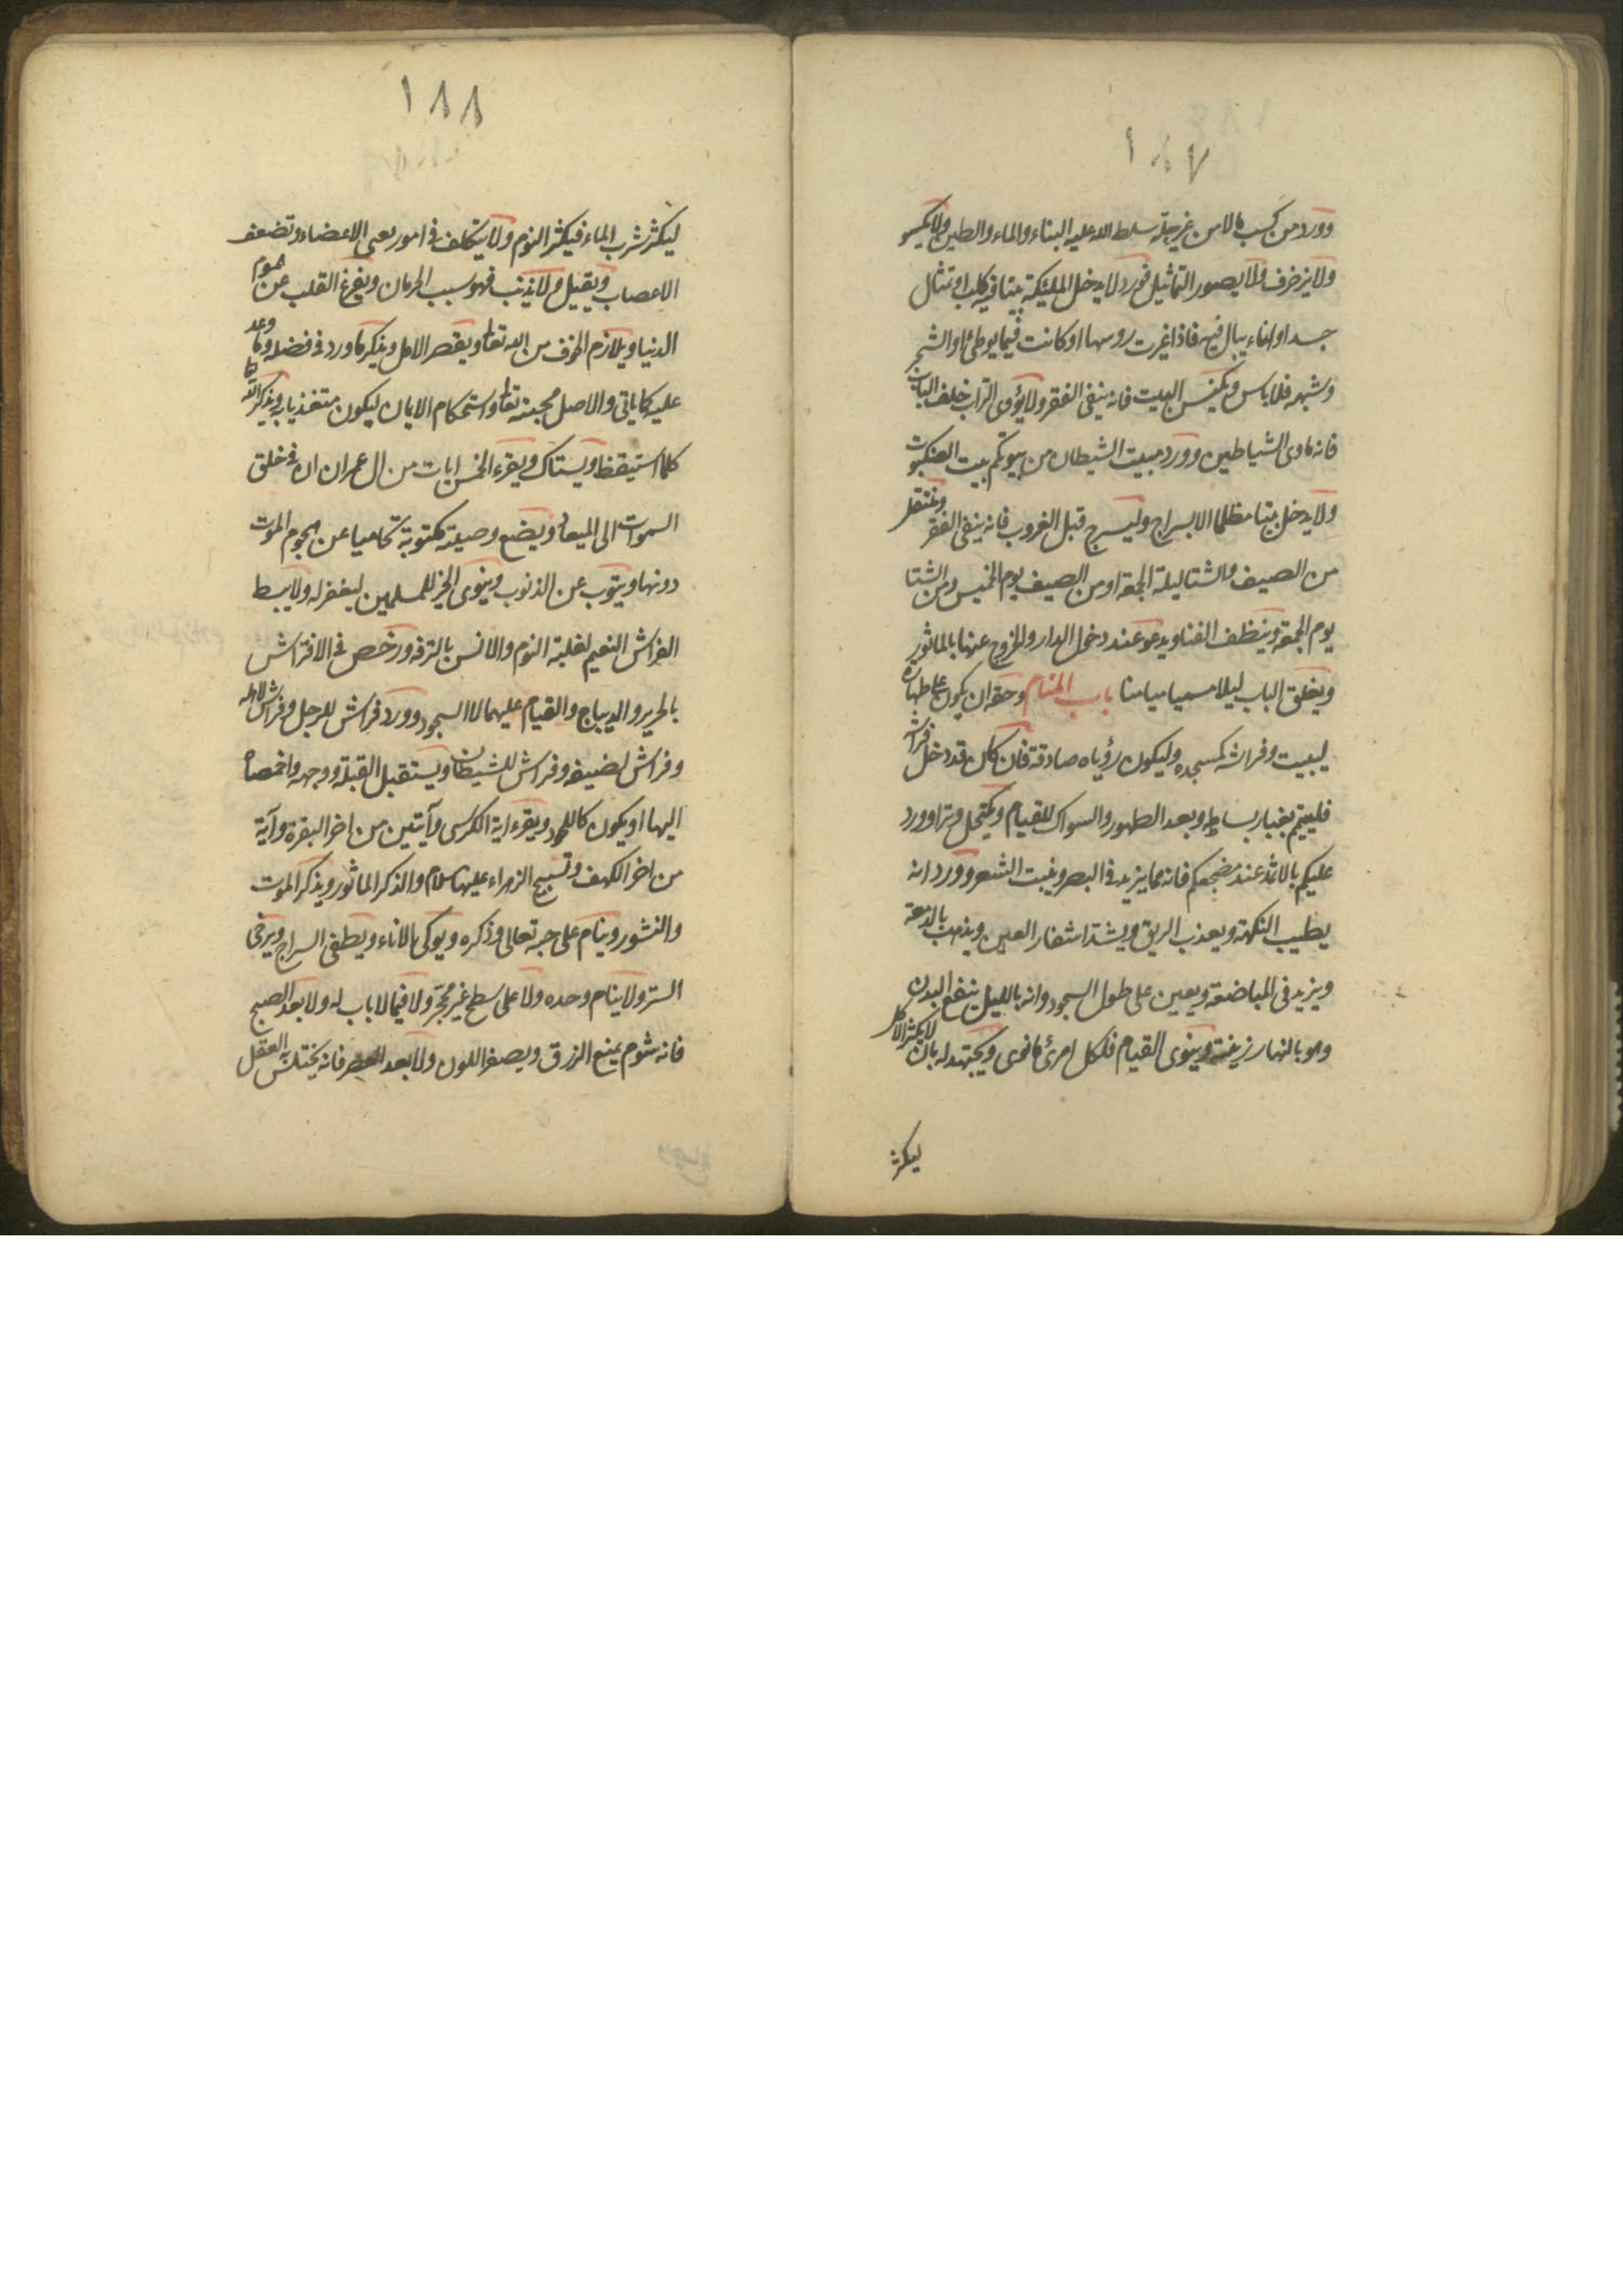 ١٨٧
وورد من كسب مالا من غير حله سلط الله عليه البناء والماء والطين ولا يكسو
ولا يزخرف ولا يصور التماثيل فورد لا يدخل الملئكة بيتا فيه كلب او تمثال
جسد او اناء يبال فيه فاذا غيرت روسها او كانت فيما يوطئ او الشجر
وشبهه فلا باس ويكنس البيت فانه ينفى الفقر ولا يؤوى التراب خلف الباب
فانه ماوى الشياطين وورد مبيت الشيطان من بيوتكم بيت العنكبوت
ولا يدخل بيتا مظلما الا بسراج وليسرج قبل الغروب فانه ينفى الفقر وينتقل
من الصيف والشتا ليلة الجمعة او من الصيف يوم الخميس ومن الشتا
يوم الجمعة وينظف الفنا ويدعو عند دخول الدار والخروج عنها بالماثور
ويغلق الباب ليلا مسميا ميامنا باب المنام وحقه ان يكون على طهارة
ليبيت وفراشه كمسجده وليكون رؤياه صادقة فان كان قد دخل فراشه
فليتيمم بغبار بساطه وبعد الطهور والسواك للقيام ويكتحل وترا وورد
عليكم بالاثمد عند مضجعكم فانه مما يزيد فى البصر وينبت الشعر وورد انه
يطيب النكهة ويعذب الريق ويشد اشفار العين ويذهب بالدمعة
ويزيد فى المباضعة ويعين على طول السجود وانه بالليل ينفع البدن
وهو بالنهار زينة وينوى القيام فلكل امرئ ما نوى ويجتهد له بان لا يكثر الاكل
ليكثر
١٨٨
ليكثر شرب الماء فيكثر النوم ولا يتكلف فى امور يعى الاعضاء وتضعف
الاعصاب ويقيل ولا يذنب فهو سبب الحرمان ويفرغ القلب عن هموم
الدنيا ويلازم الخوف من الله تعالى ويقصر الامل ويذكر ما ورد فى فضله وما وعد
عليه كما ياتى والاصل محبته تعالى واستحكام الايمان ليكون متغذيا به ويذكر الله
كلما استيقظ ويستاك ويقرء الخمس ايات من ال عمران ان فى خلق
السموات الى الميعاد ويضع وصيته مكتوبة تحاميا عن هجوم الموت
دونها ويتوب عن الذنوب وينوى الخير للمسلمين ليغفر له ولا يبسط
الفراش النعيم لغلبة النوم والانس بالترفه ورخص فى الافتراش
بالحرير والديباج والقيام عليهما لا السجود وورد فراش للرجل وفراش لاهله
وفراش لضيفه وفراش للشيطان ويستقبل القبلة ووجهه واخمصاه
اليها او يكون كاللحد ويقرء اية الكرسى وآيتين من اخر البقرة وآية
من اخر الكهف وتسبيح الزهراء عليها سلام والذكر الماثور ويذكر الموت
والنشور وينام على حبه تعالى وذكره ويوكى الاناء ويطفى السراج ويرخى
الستر ولا ينام وحده ولا على سطح غير محجر ولا فيما لا باب له ولا بعد الصبح
فانه شوم يمنع الرزق ويصفر اللون ولا بعد العصر فانه يختلس العقل